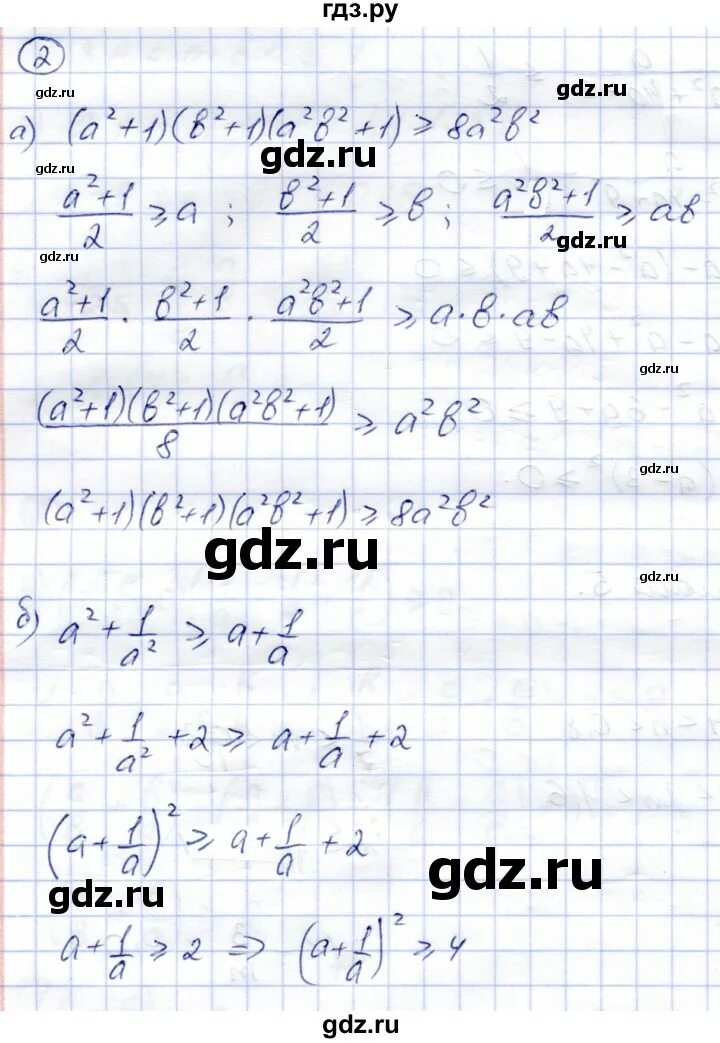 гдз.ру
2
gdz.ru
gdz.ru
а) (a²+1)(b²+1)(a²b²+1) ≥ 8a²b²
gdz.ru
gdz.ru
(a²+1)/2 ≥ a ; (b²+1)/2 ≥ b ; (a²b²+1)/2 ≥ ab
gdz.ru
gdz.ru
(a²+1)/2 · (b²+1)/2 · (a²b²+1)/2 ≥ a·b·ab
gdz.ru
((a²+1)(b²+1)(a²b²+1))/8 ≥ a²b²
gdz.ru
(a²+1)(b²+1)(a²b²+1) ≥ 8a²b²
gdz.ru
gdz.ru
б) a² + 1/a² ≥ a + 1/a
a² + 1/a² + 2 ≥ a + 1/a + 2
(a + 1/a)² ≥ a + 1/a + 2
gdz.ru
gdz.ru
a + 1/a ≥ 2 ⇒ (a + 1/a)² ≥ 4
gdz.ru